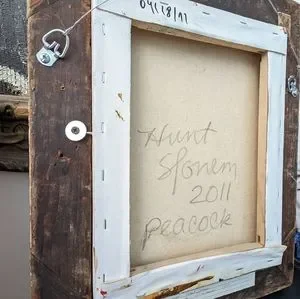 04/18/11
Hunt
Slonem
2011
Peacock